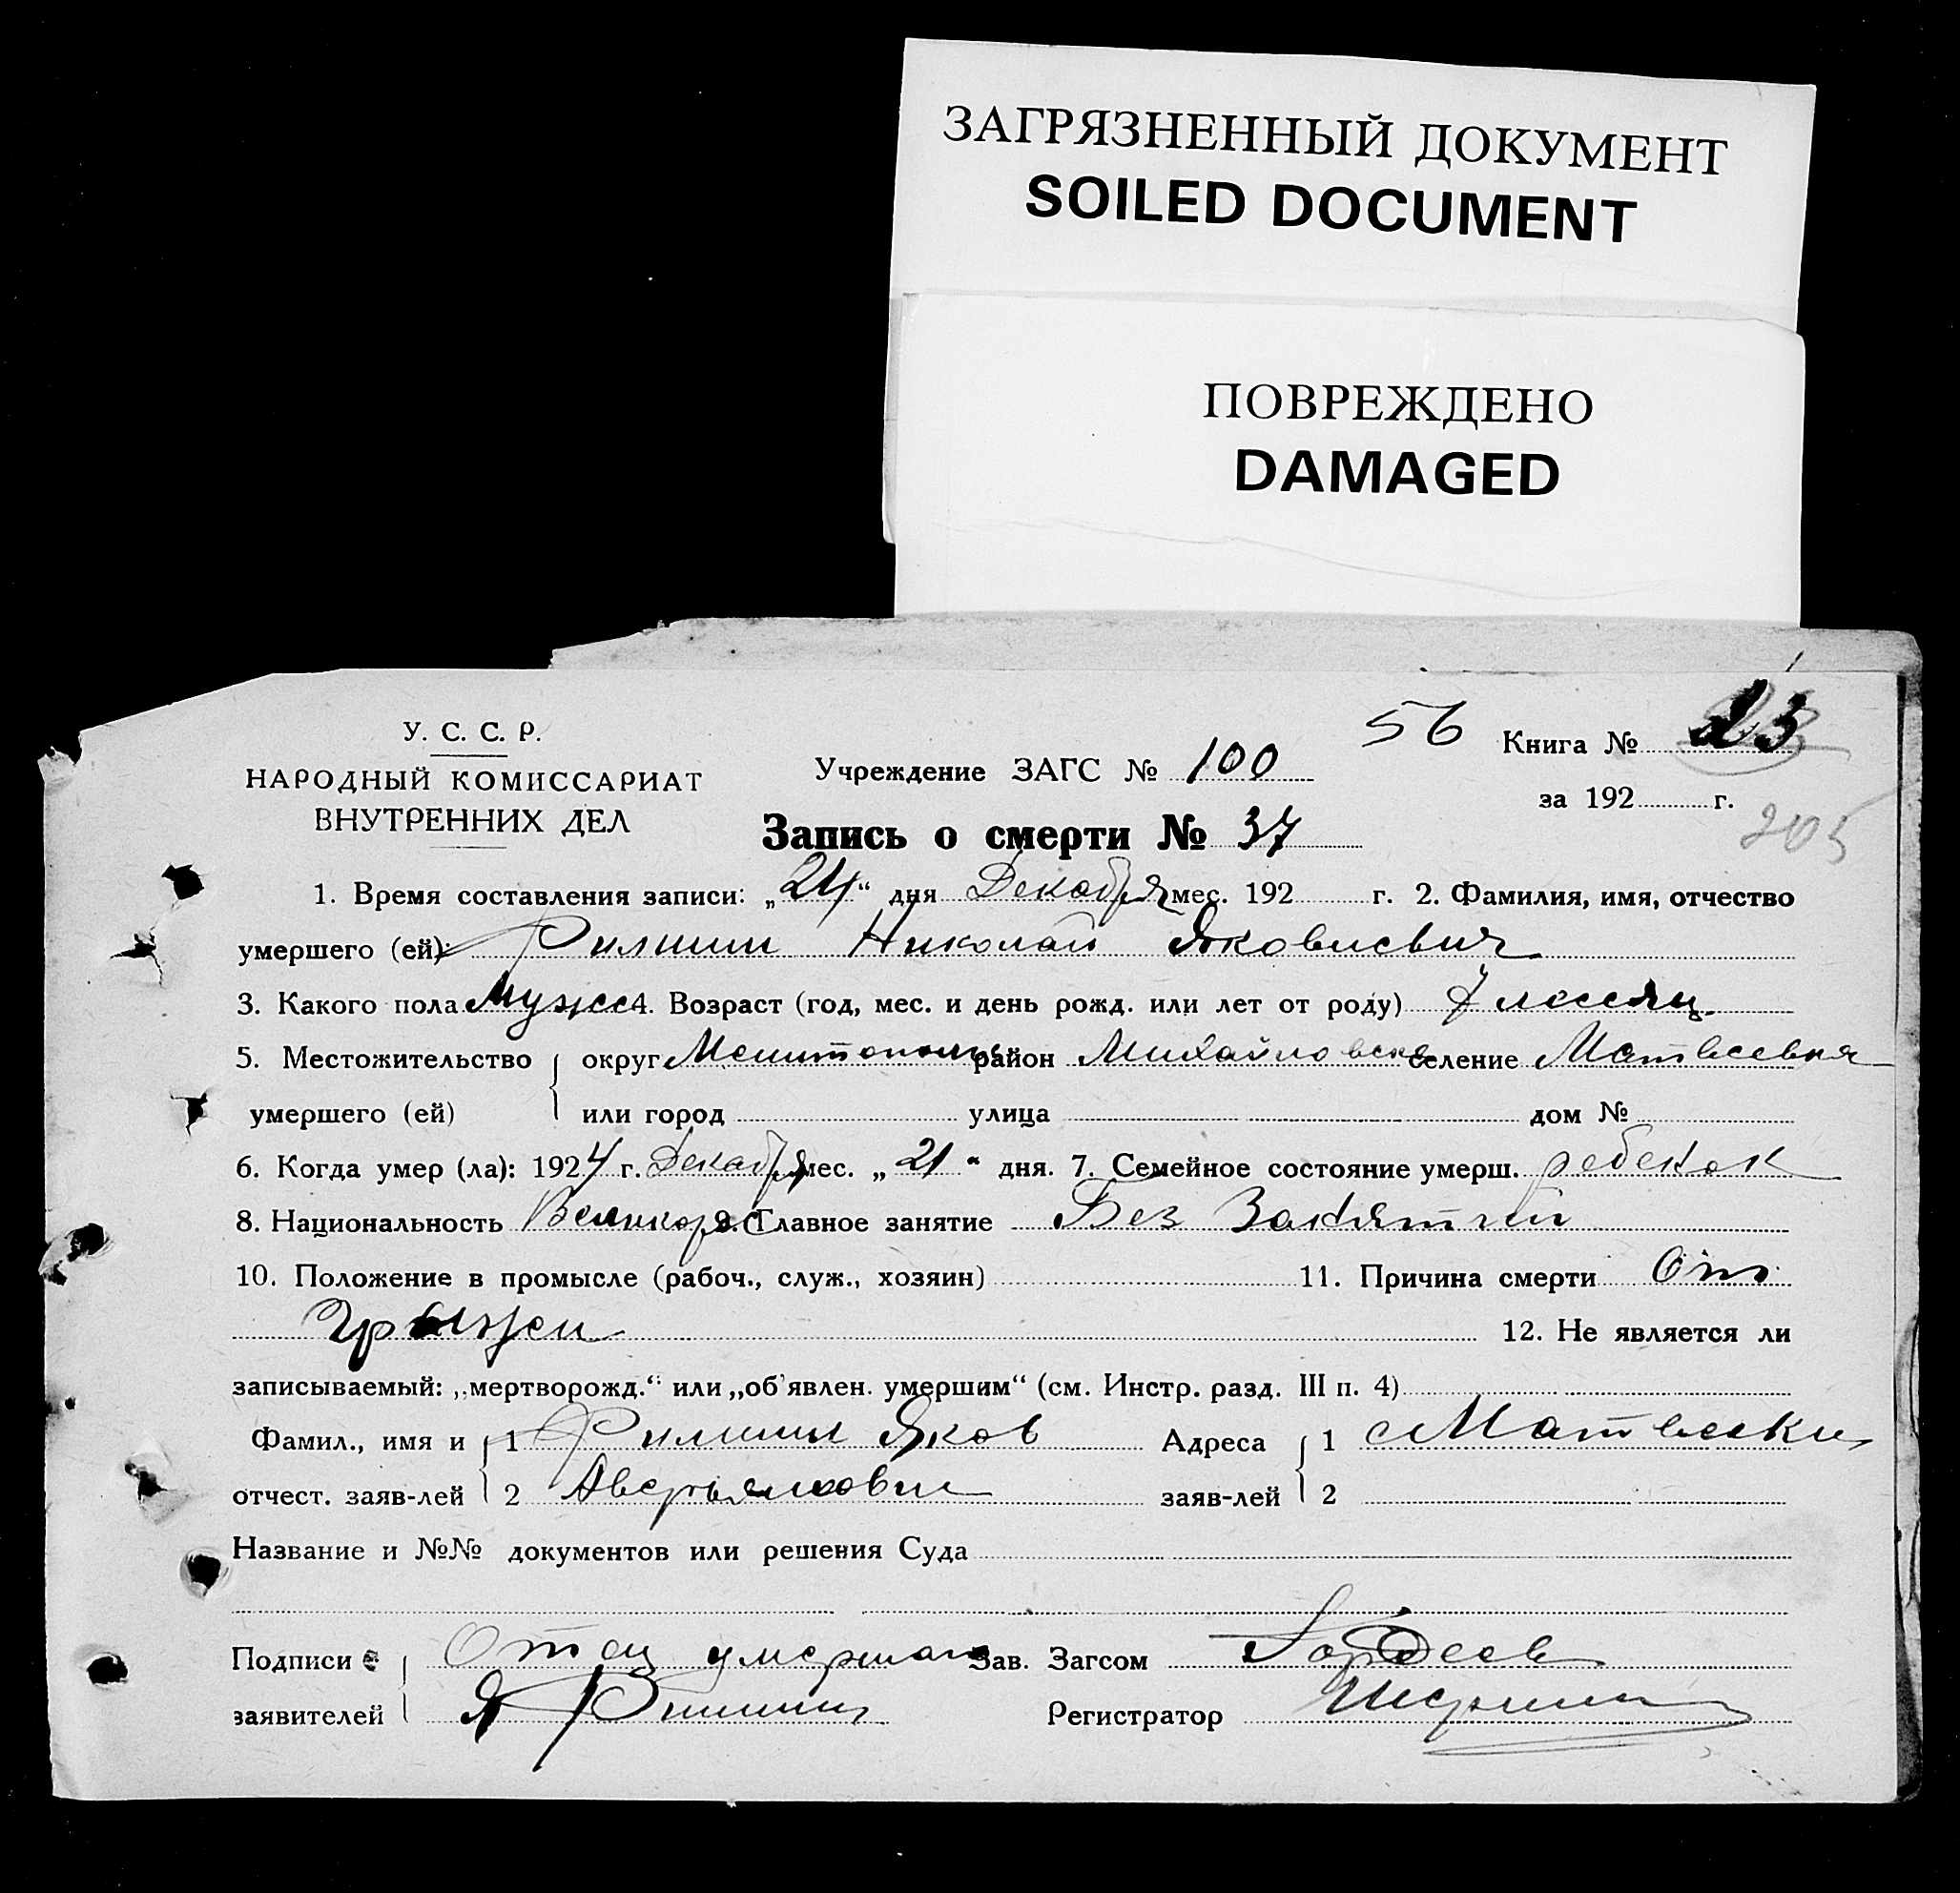 ЗАГРЯЗНЕННЫЙ ДОКУМЕНТ
SOILED DOCUMENT
ПОВРЕЖДЕНО
DAMAGED
У. С. С. Р.
НАРОДНЫЙ КОМИССАРИАТ
ВНУТРЕННИХ ДЕЛ
Учреждение ЗАГС № 100
56 Книга № 23
за 192 г.
205
Запись о смерти № 37
1. Время составления записи: „24“ дня Декабря мес. 192 г. 2. Фамилия, имя, отчество
умершего (ей): Филипп Николай Яковлевич
3. Какого пола Мужс 4. Возраст (год, мес. и день рожд. или лет от роду) 7 месяц.
5. Местожительство округ Мелитополь район Михайловск селение Матвеевка
умершего (ей) или город улица дом №
6. Когда умер (ла): 1924 г. Декабря мес. „21“ дня. 7. Семейное состояние умерш. ребенок
8. Национальность Великорос 9. Главное занятие Без Занятий
10. Положение в промысле (рабоч., служ., хозяин) 11. Причина смерти От
Грыжи 12. Не является ли
записываемый: „мертворожд.“ или „об'явлен. умершим“ (см. Инстр. разд. III п. 4)
Фамил., имя и 1 Филипп Яков Адреса 1 с Матвеевки
отчест. заяв-лей 2 Аверьянович заяв-лей 2
Название и №№ документов или решения Суда
Подписи Отец умершаго Зав. Загсом Гордеев
заявителей Я Филипп Регистратор